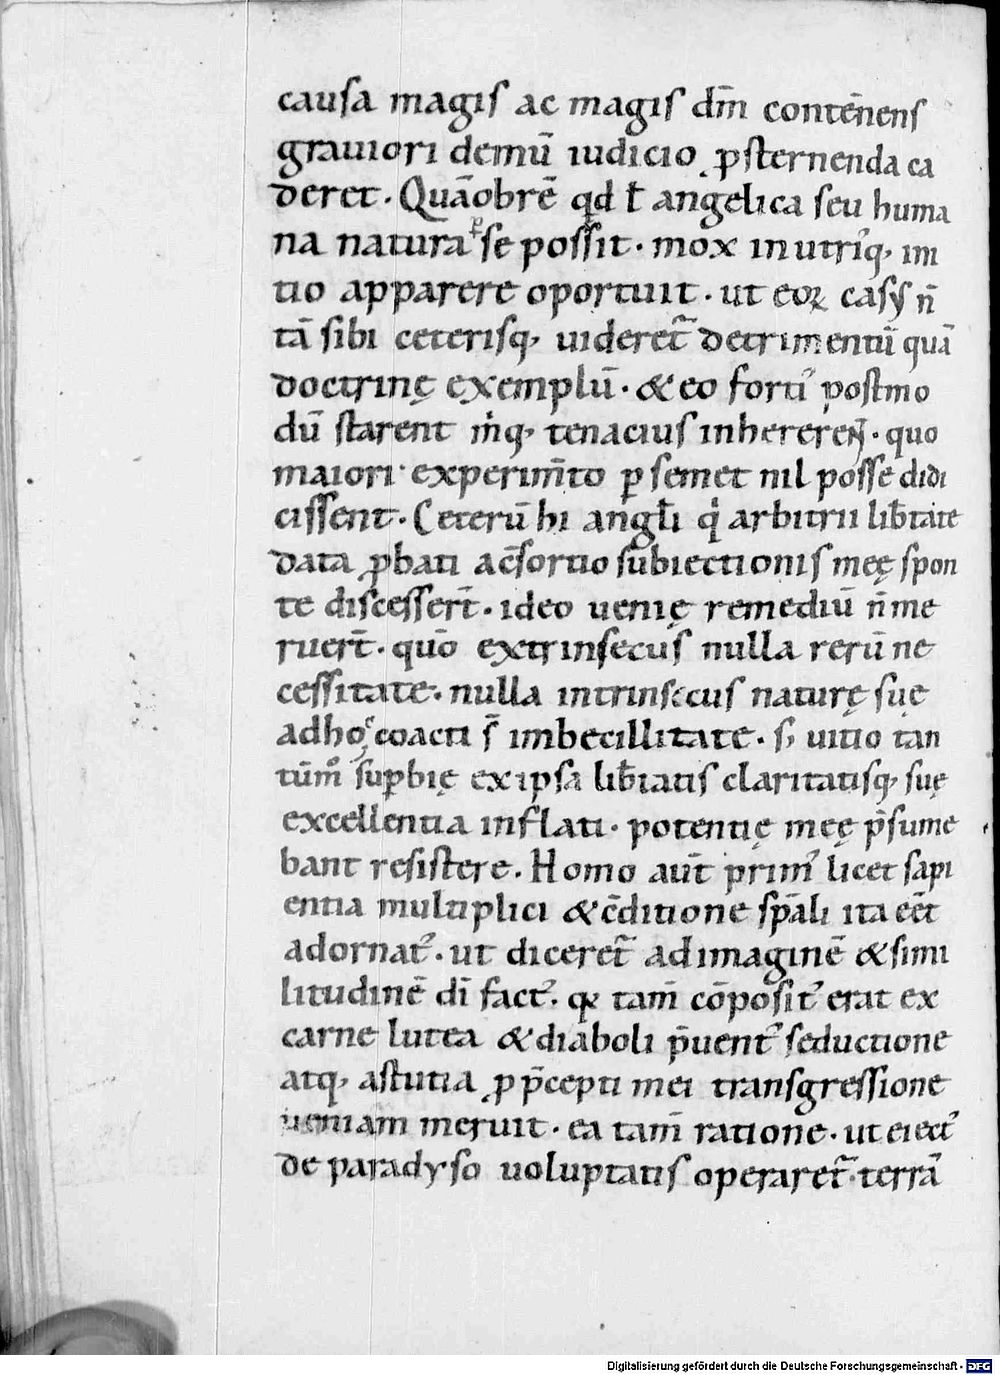 causa magis ac magis dm̄ contēnens
grauiori demū iudicio ꝓsternenda ca
deret. Quāobrē qd ł angelica seu huma
na natura ꝑ se possit. mox in utriꝗ, ini
tio apparere oportuit. ut eoꝝ casꝰ n̄
tā sibi ceterisꝗ, uideret̄ detrimentū quā
doctrinę exemplū. & eo fortiꝰ postmo
dū starent m̄ꝗ, tenacius inhererent. quo
maiori experim̄to ꝑ semet nil posse didi
cissent. Ceterū hi angłi q' arbitrii lib̄tate
data ꝓbati ac̄sortio subiectionis meę spon
te discesser̄t. ideo uenię remediū n̄ me
ruer̄t. quō extrinsecus nulla rerū ne
cessitate. nulla intrinsecus naturę suę
ad hoc coacti s̄ imbecillitate. s; uitio tan
tūm̊ suꝑbię ex ipsa lib̄tatis claritatisꝗ, suę
excellentia inflati. potentię meę p̄sume
bant resistere. Homo aūt primꝰ licet sapi
entia multiplici & c̄ditione sp̄ali ita eēt
adornatꝰ. ut diceret̄ ad imaginē & simi
litudinē dī factꝰ. qꝛ tam̄ cōpositꝰ erat ex
carne lutea & diaboli p̄uentꝰ seductione
atꝗ, astutia ꝓ p̄cepti mei transgressione
ueniam meruit. ea tam̄ ratione. ut eiectꝰ
de paradyso uoluptatis operaret̄ terrā
Digitalisierung gefördert durch die Deutsche Forschungsgemeinschaft - DFG